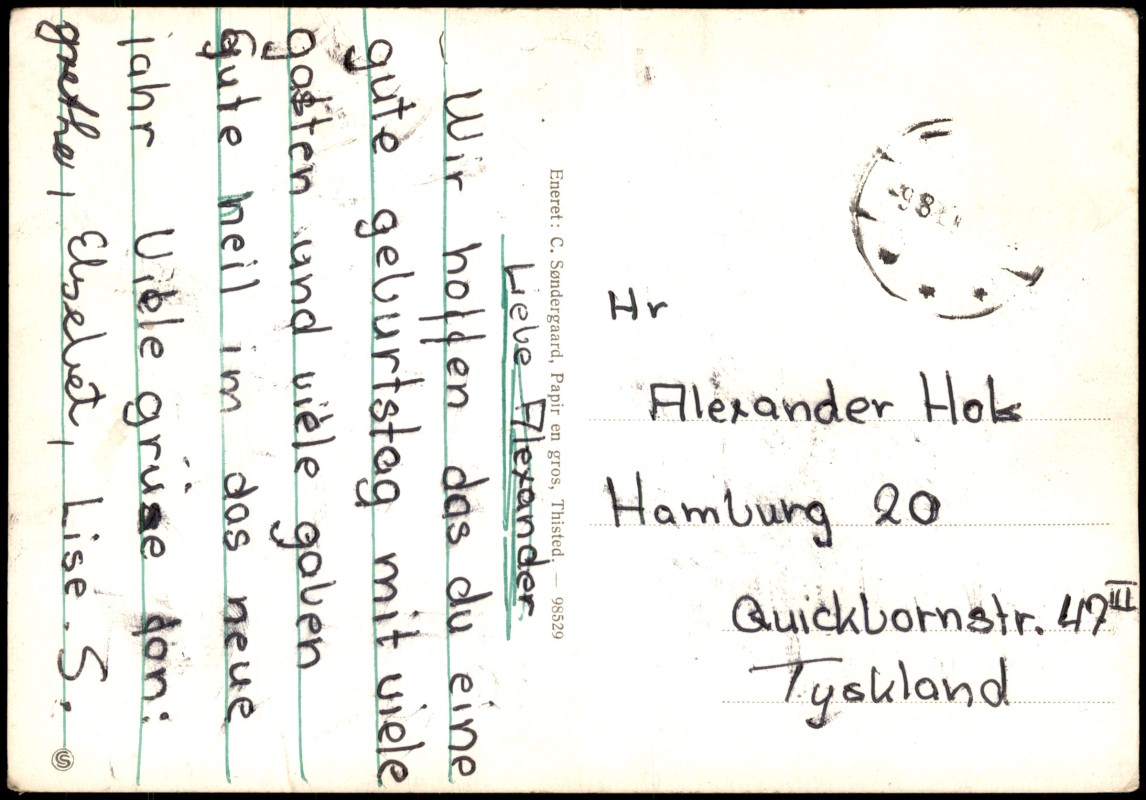 Liebe Alexander
Wir holfen das du eine
gute geburtstag mit viele
gasten und viele gaben
Gute heil im das neue
jahr Viele grüse don:
grethe, Elsebet, Lise. S.
Eneret: C. Søndergaard, Papir en gros, Thisted. — 98529
Hr
Alexander Hok
Hamburg 20
Quickbornstr. 47 III
Tyskland
-9 8
S